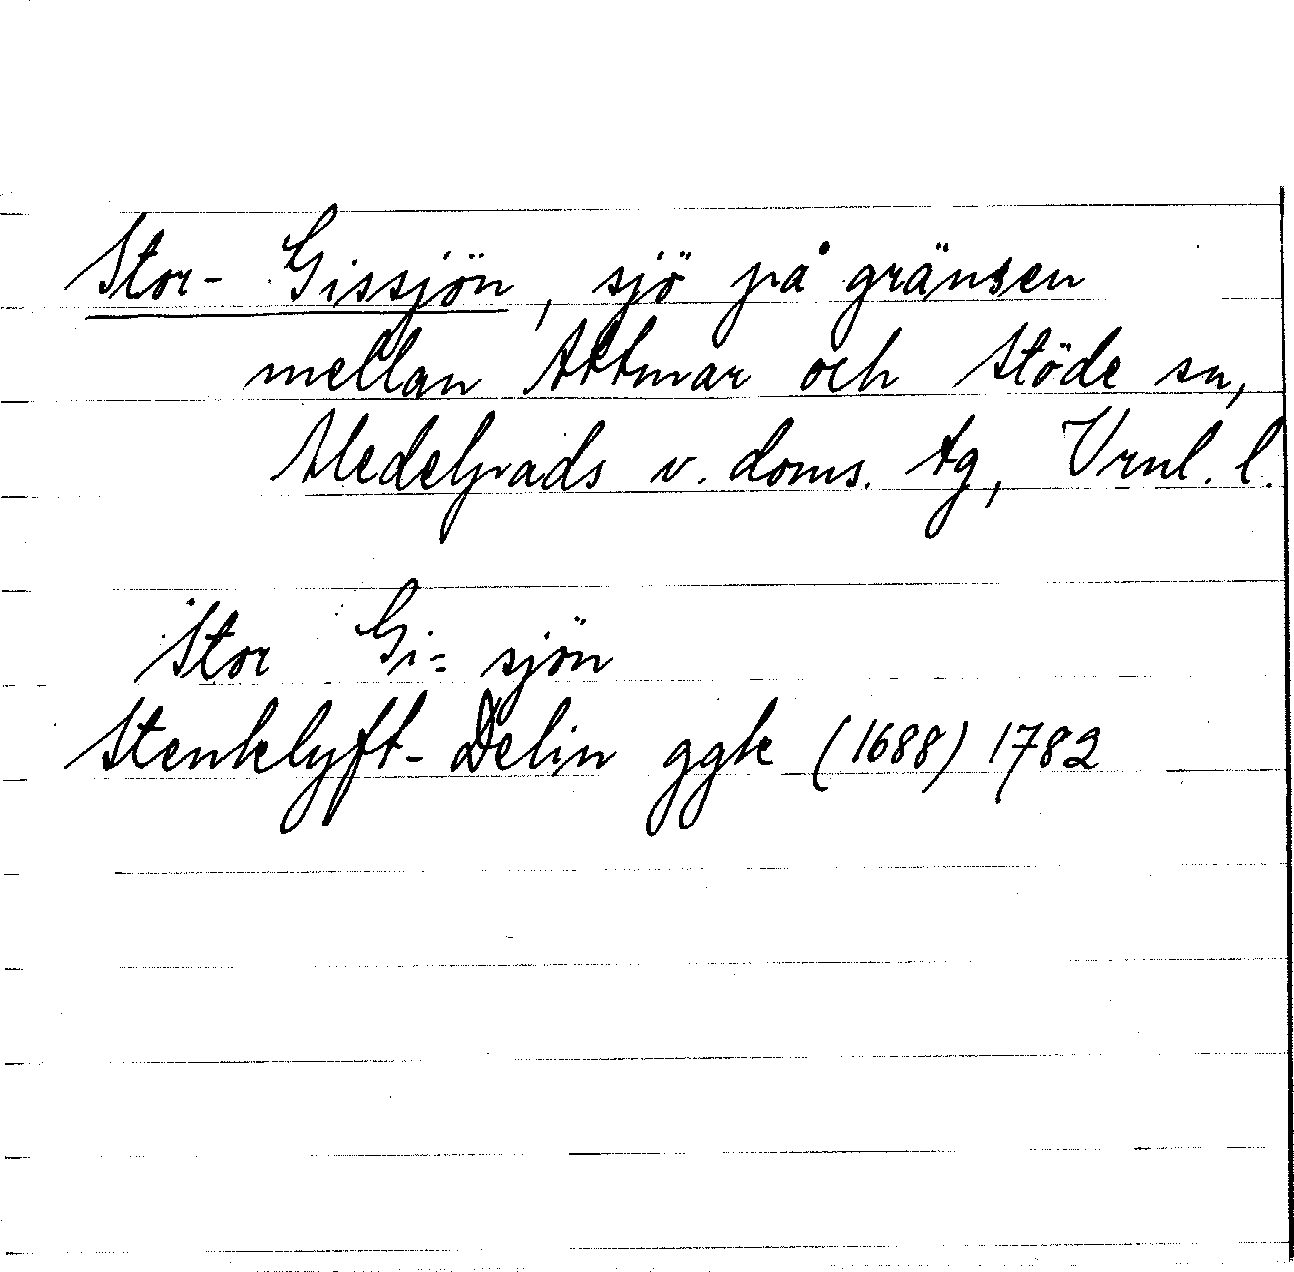 Stor-Gissjön, sjö på gränsen
mellan Attmar och Stöde sn,
Medelpads v. doms. tg, Vrnl. l.
Stor Gi= sjön
Stenklyft-Delin ggk (1688) 1782